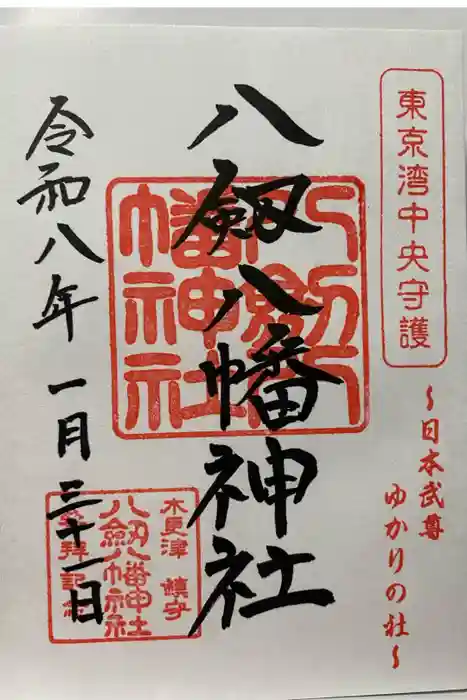 東京湾中央守護
～日本武尊
ゆかりの社～
八劔八幡神社
八劔八幡神社
木更津 鎮守
八劔八幡神社
参拝記念
令和八年一月三十一日